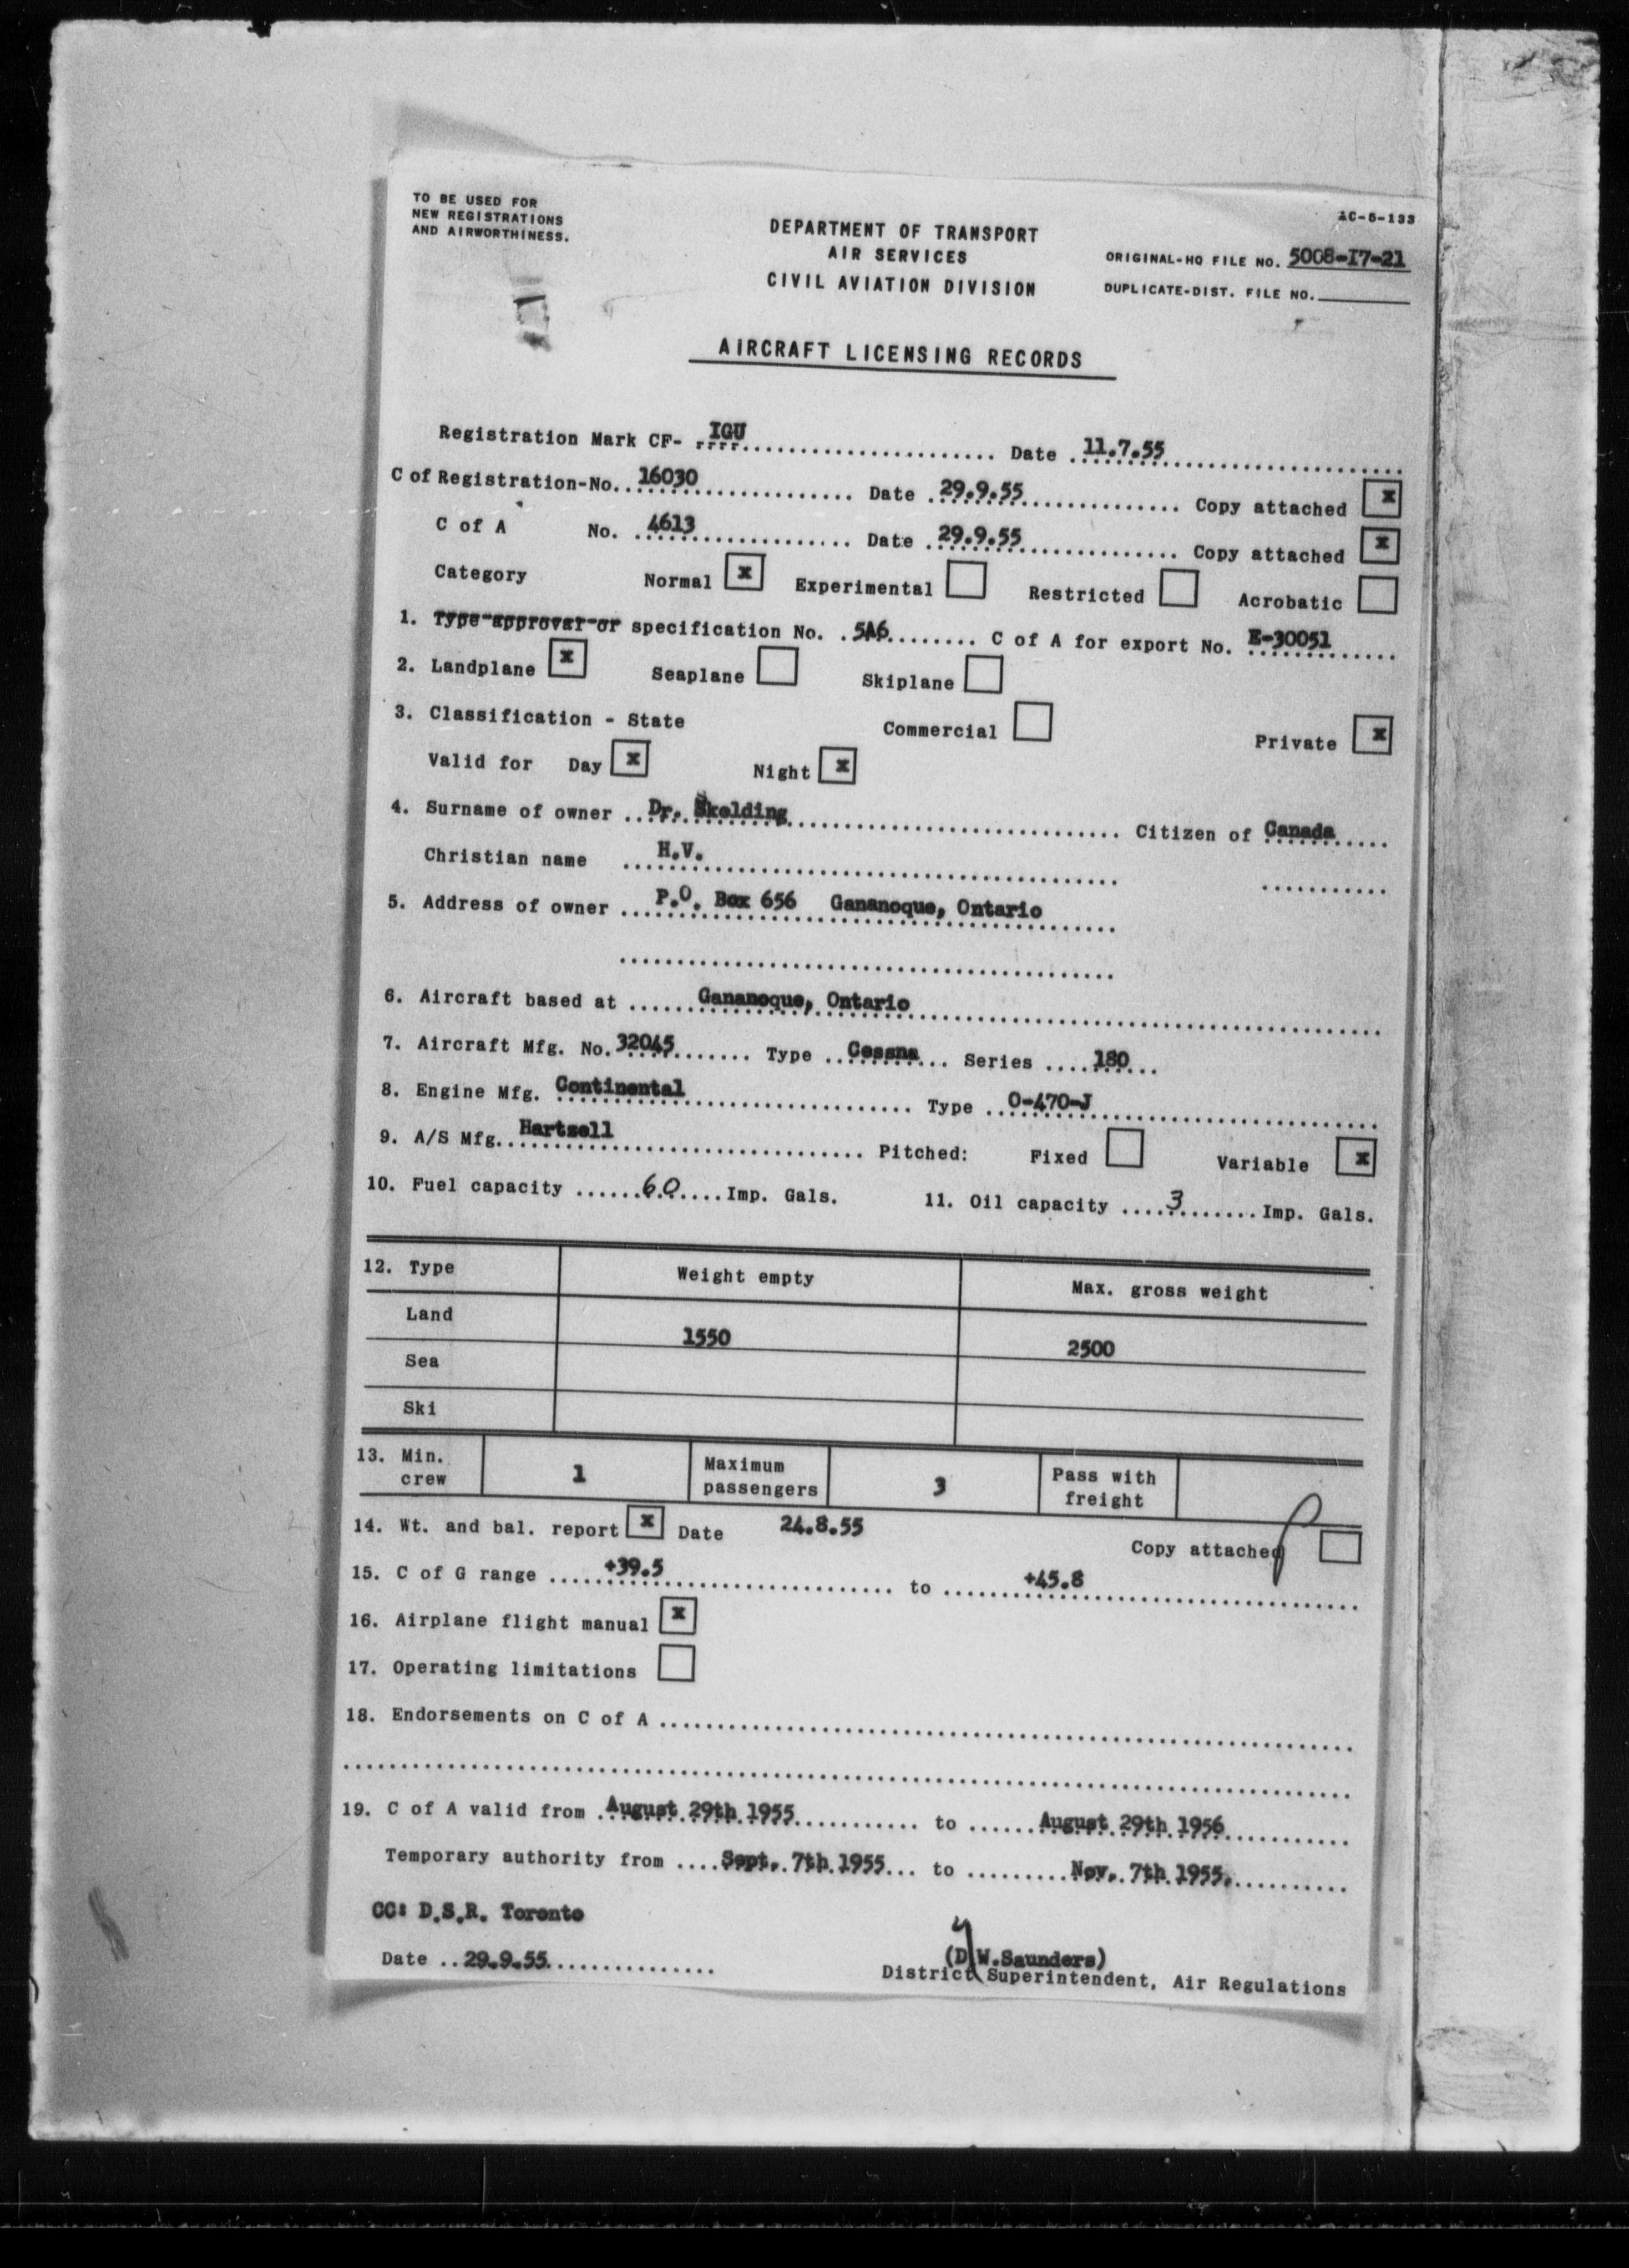 TO BE USED FOR
NEW REGISTRATIONS
AND AIRWORTHINESS.
AC-5-133
DEPARTMENT OF TRANSPORT
AIR SERVICES
CIVIL AVIATION DIVISION
ORIGINAL-HQ FILE NO. 5008-I7-21
DUPLICATE-DIST. FILE NO.
AIRCRAFT LICENSING RECORDS
Registration Mark CF- IGU Date 11.7.55
C of Registration-No. 16030 Date 29.9.55 Copy attached x
C of A No. 4613 Date 29.9.55 Copy attached x
Category Normal x Experimental Restricted Acrobatic
1. Type approval or specification No. 5A6 C of A for export No. E-30051
2. Landplane x Seaplane Skiplane
3. Classification - State Commercial Private x
Valid for Day x Night x
4. Surname of owner Dr. Skelding Citizen of Canada
Christian name H.V.
5. Address of owner P.O. Box 656 Gananoque, Ontario
6. Aircraft based at Gananoque, Ontario
7. Aircraft Mfg. No. 32045 Type Cessna Series 180
8. Engine Mfg. Continental Type O-470-J
9. A/S Mfg. Hartzell Pitched: Fixed Variable x
10. Fuel capacity 60 Imp. Gals. 11. Oil capacity 3 Imp. Gals.
12. Type Weight empty Max. gross weight
Land
1550 2500
Sea
Ski
13. Min. crew 1 Maximum passengers 3 Pass with freight
14. Wt. and bal. report x Date 24.8.55 Copy attached
15. C of G range +39.5 to +45.8
16. Airplane flight manual x
17. Operating limitations
18. Endorsements on C of A
19. C of A valid from August 29th 1955 to August 29th 1956
Temporary authority from Sept. 7th 1955 to Nov. 7th 1955.
CC: D.S.R. Toronto
Date 29.9.55
(D.W.Saunders)
District Superintendent, Air Regulations